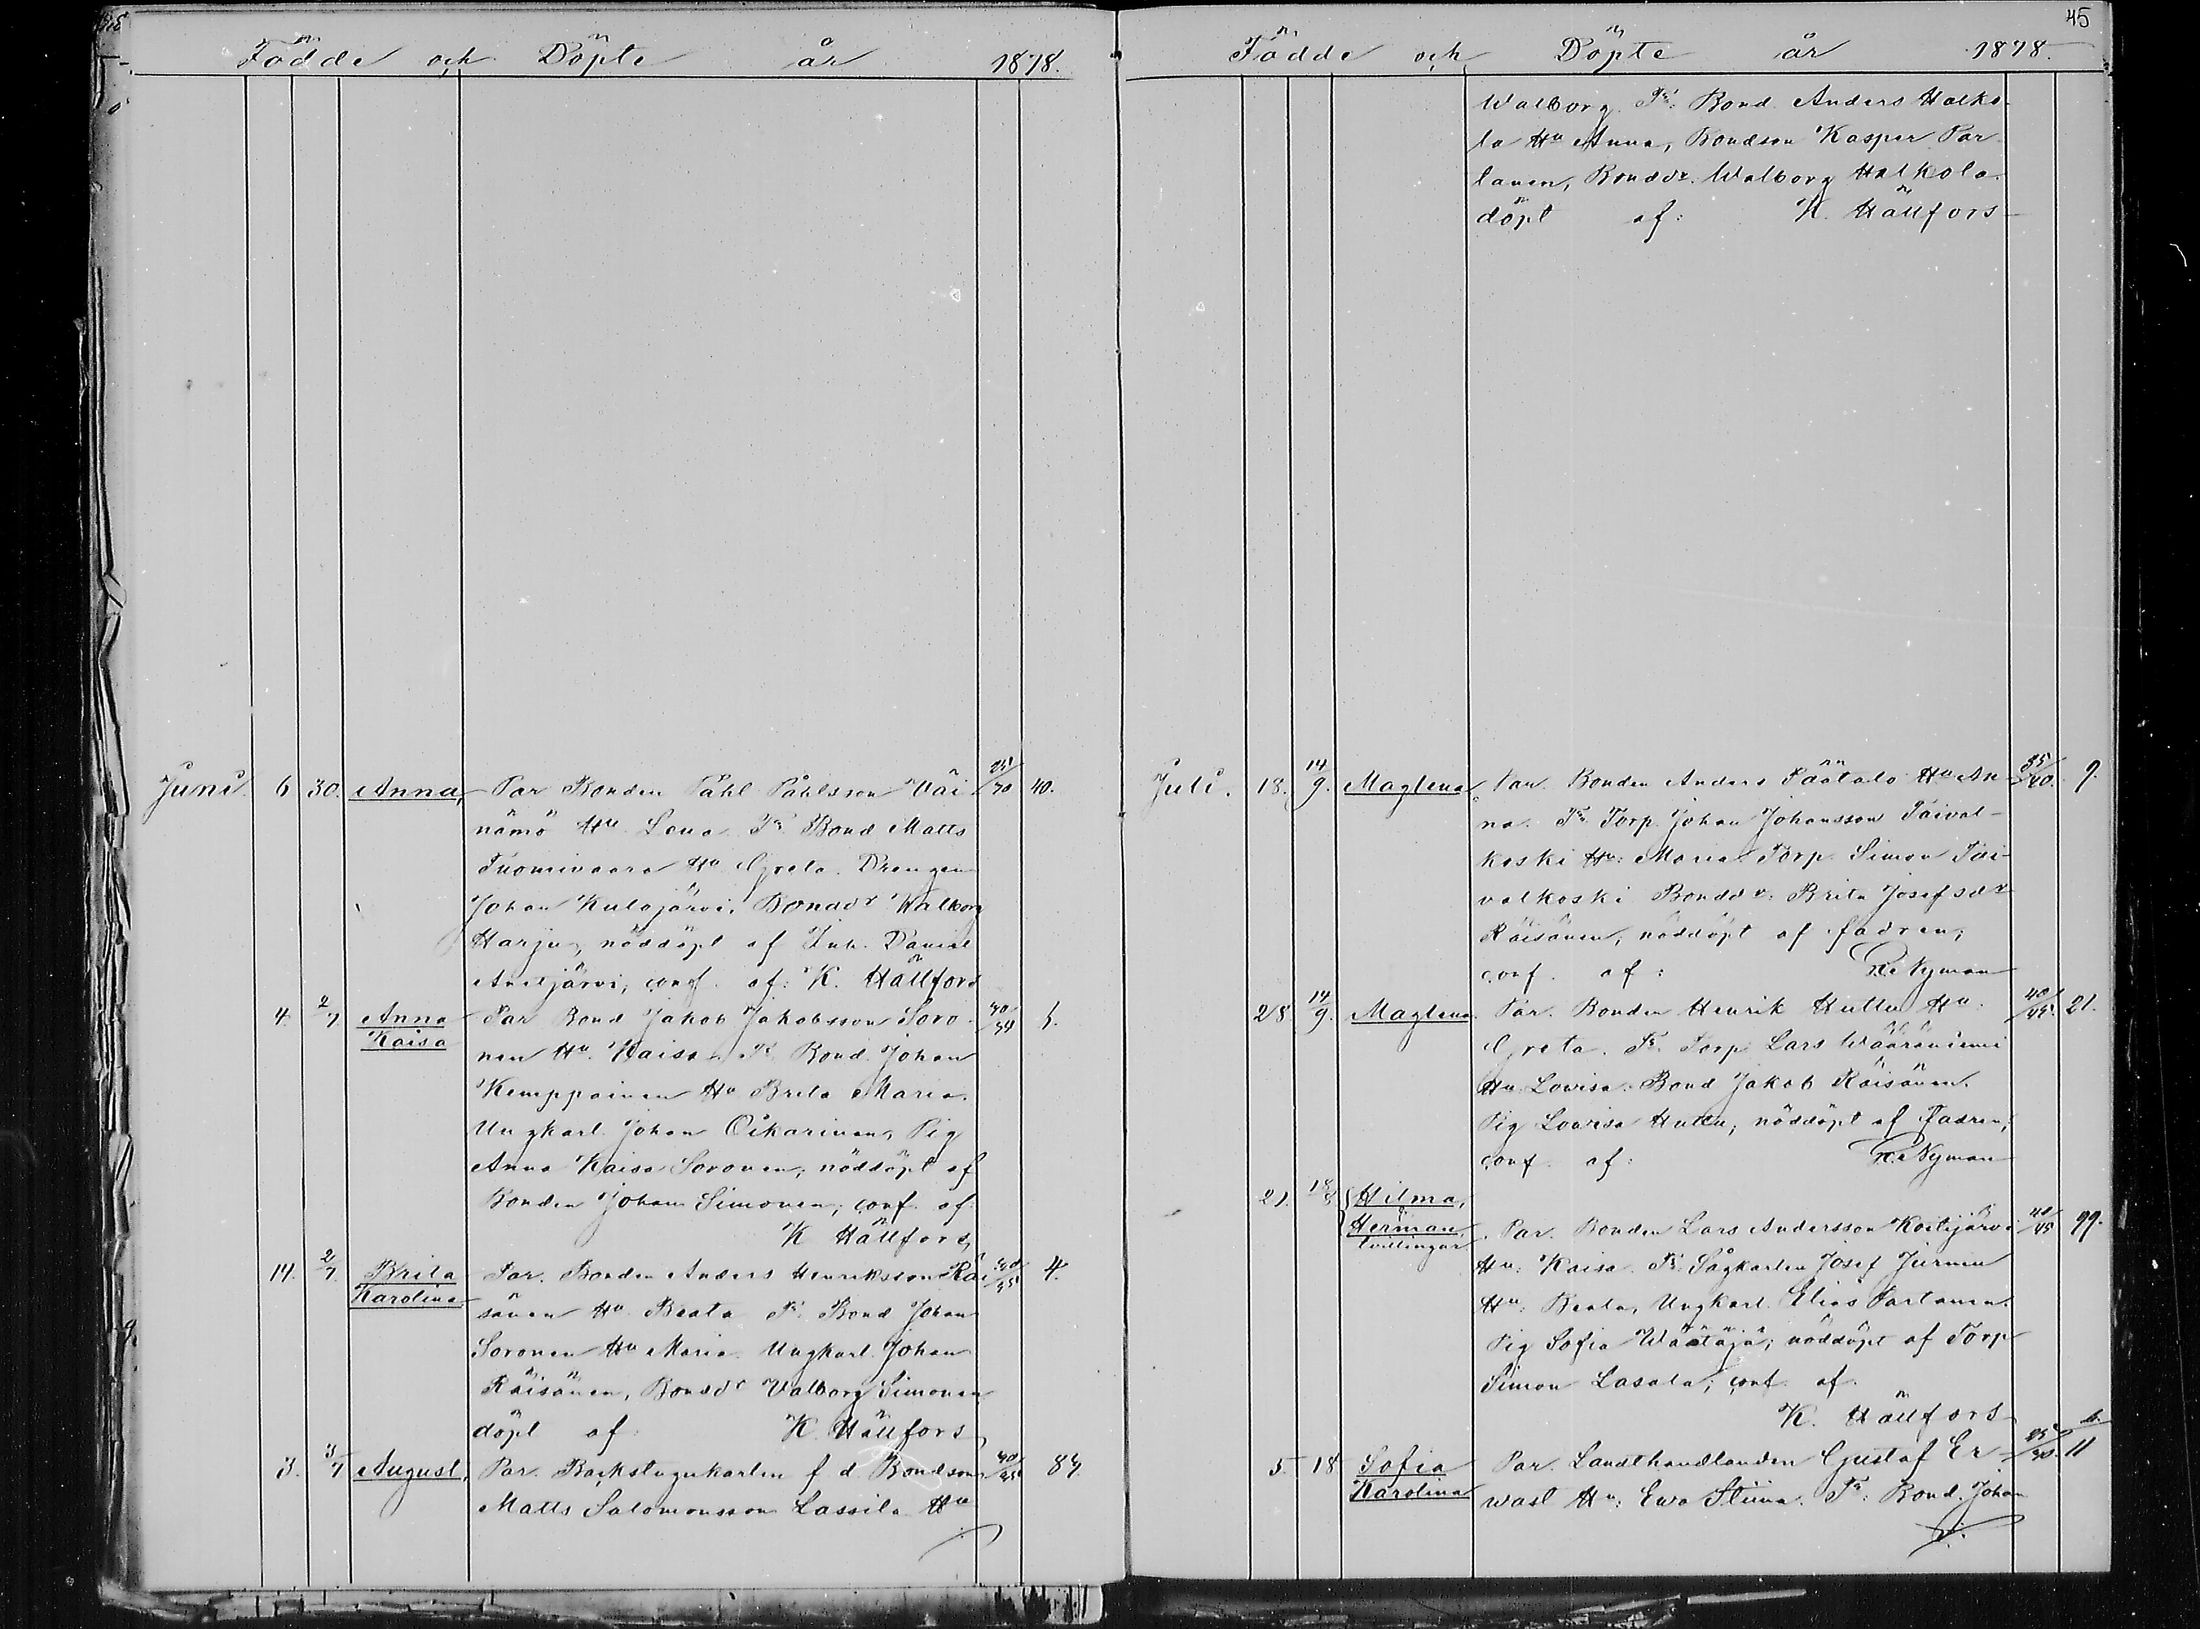 Födde och Döpte år 1878.
Juni 6 30. Anna, Par Bonden Påhl Påhlsson Väi- 25/30 40.
nämö Hu Lena. Fr. Bond Matts
Tuomivaara Hu Greta. Drengen
Johan Kulojärvi, Bonddr Walborg
Harju, nöddöpt af Inh. Daniel
järvi, conf. af: K. Hällfors
4. 2/7 Anna Par Bond Jakob Jakobsson Soro- 6.
Kaisa nen Hu. Kaisa. Fr. Bond. Johan
Kemppainen Hu Brita Maria.
Ungkarl Johan Oikarinen, Pig
Anna Kaisa Soronen, nöddöpt af
Bonden Johan Simonen; conf. af
K Hällfors
14. 2/7. Brita Par. Bonden Anders Henriksson Räi- 4.
Karolina sänen Hu Beata Fr. Bond Johan
Soronen Hu Maria. Ungkarl Johan
Räisänen, Bonddr Valborg Simonen
döpt af: K. Hällfors
3. 3/7 August, Par. Backstugukarlen f. d. Bondson 40/45
Matts Salomonsson Lassila Hu
45
Födde och Döpte år 1878.
Walborg. Fr. Bond Anders Halko-
la Hu Anna, Bondson Kasper Par-
tanen, Bonddr. Walborg Halkola.
döpt af: K. Hällfors
Juli. 18. 14/9. Maglena Par. Bonden Anders Säätalo Hu An- 35/40. 9.
na. Fr. Torp. Johan Johansson Taival-
koski Hu: Maria. Torp. Simon Tai-
valkoski Bonddr: Brita Josefsdr
Räisänen, nöddöpt af fadren;
conf. af: Nyman
28 14/9. Maglena Par. Bonden Henrik Huttu Hu. 40/45. 21.
Greta. Fr. Torp Lars Wääräniemi
Hu Lovisa. Bond Jakob Räisänen.
Pig Lovisa Huttu, nöddöpt af Fadren;
conf. af: Nyman
21. 18/8 Hilma,
Herman Par. Bonden Lars Andersson Koitijärvi 40/45 99.
tvillingar Hu: Kaisa. Fr. Sågkarlen Josef Jurmu
Hu: Beata, Ungkarl Elias Partanen.
Pig Sofia Wäätäjä; nöddöpt af Torp
Simon Lasala; conf. af.
K. Hällfors
5. 18 Sofia Par. Landthandlanden Gustaf Er- 11
Karolina wast Hu: Ewa Stiina. Fr. Bond. Johan